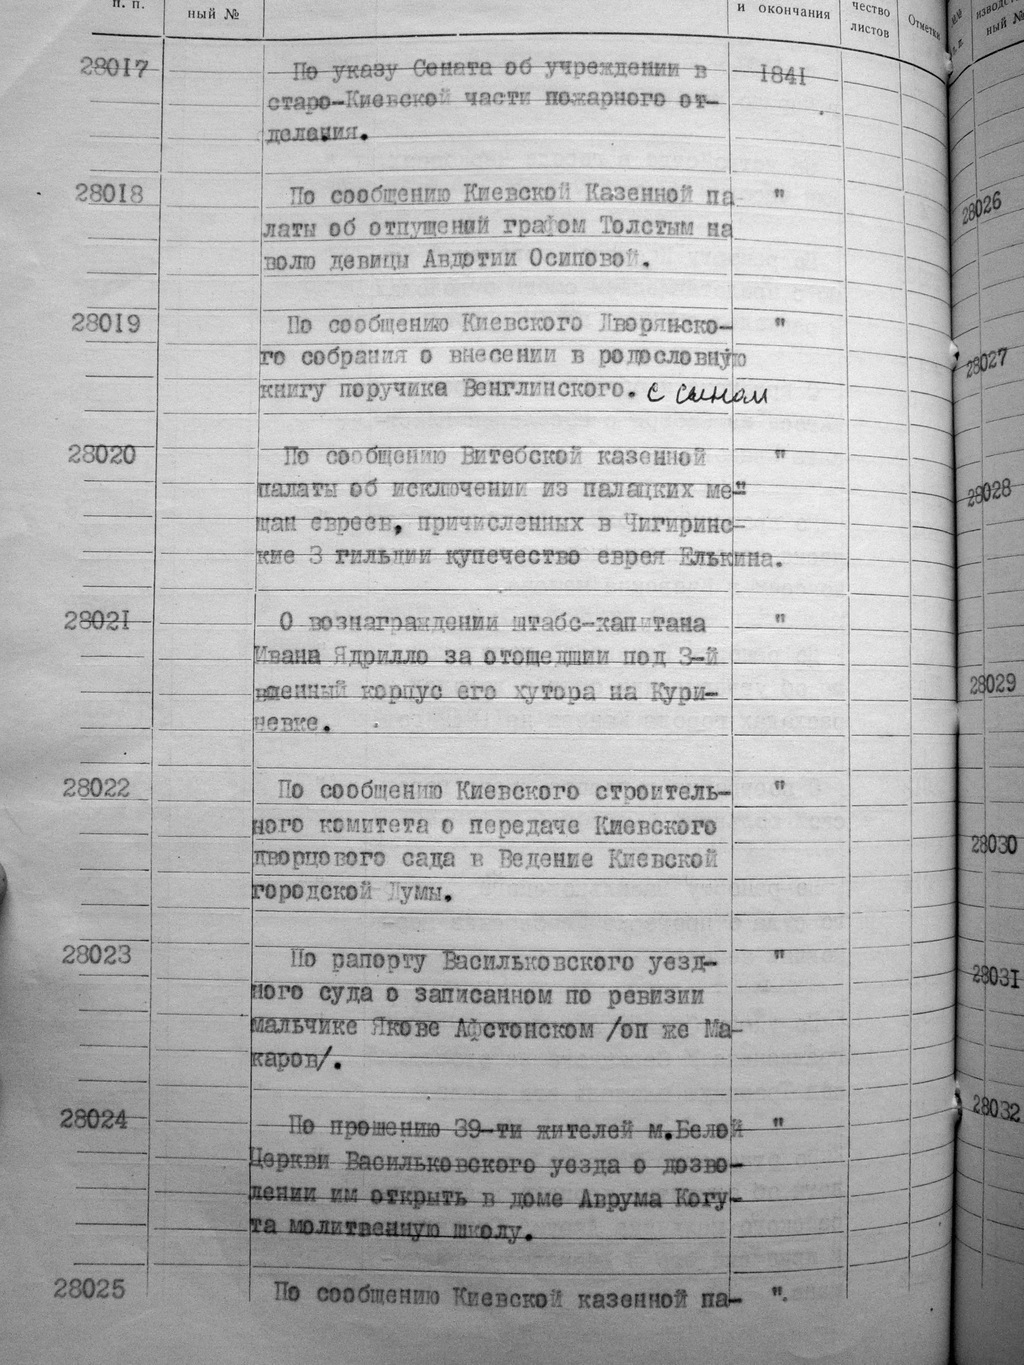 п. п.
ный №
и окончания
чество
листов
Отметки
28017 По указу Сената об учреждении в 1841
старо-Киевской части пожарного от-
деления.
28018 По сообщению Киевской Казенной па- "
латы об отпущений графом Толстым на
волю девицы Авдотии Осиповой.
28019 По сообщению Киевского Дворянско- "
го собрания о внесении в родословную
книгу поручика Венглинского. с сыном
28020 По сообщению Витебской казенной "
палаты об исключении из палацких ме-"
щан евреев, причисленных в Чигиринс-
кие 3 гильдии купечество еврея Елькина.
28021 О вознаграждении штабс-капитана "
Ивана Ядрилло за отошедший под 3-й
военный корпус его хутора на Кури-
невке.
28022 По сообщению Киевского строитель- "
ного комитета о передаче Киевского
дворцового сада в Ведение Киевской
городской Думы.
28023 По рапорту Васильковского уезд- "
ного суда о записанном по ревизии
мальчике Якове Афстонском /оп же Ма-
каров/.
28024 По прошению 39-ти жителей м.Белой "
Церкви Васильковского уезда о дозво-
лении им открыть в доме Аврума Когу-
та молитвенную школу.
28025 По сообщению Киевской казенной па- ".
ный №
28026
28027
28028
28029
28030
28031
28032